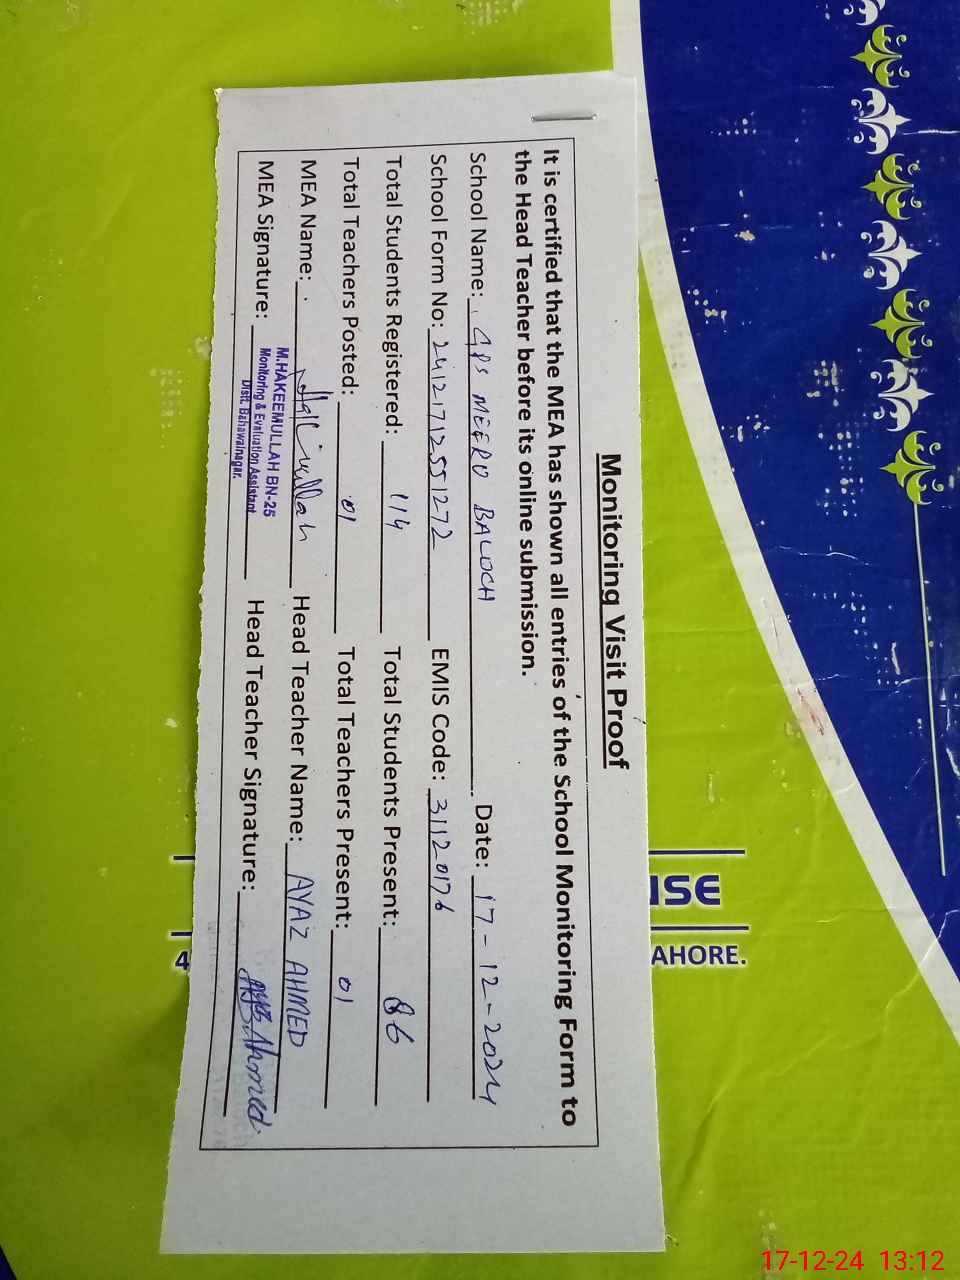 Monitoring Visit Proof
It is certified that the MEA has shown all entries of the School Monitoring Form to
the Head Teacher before its online submission.
School Name: GPS MEERO BALOCH Date: 17-12-2024
School Form No: 24121712551272 EMIS Code: 31120176
Total Students Registered: 114 Total Students Present: 86
Total Teachers Posted: 01 Total Teachers Present: 01
MEA Name: Hakimullah Head Teacher Name: AYAZ AHMED
MEA Signature: Head Teacher Signature: Ahmed
M.HAKEEMULLAH BN-25
Monitoring & Evaluation Assistant
Distt. Bahawalnagar.
USE
AHORE.
4
17-12-24 13:12